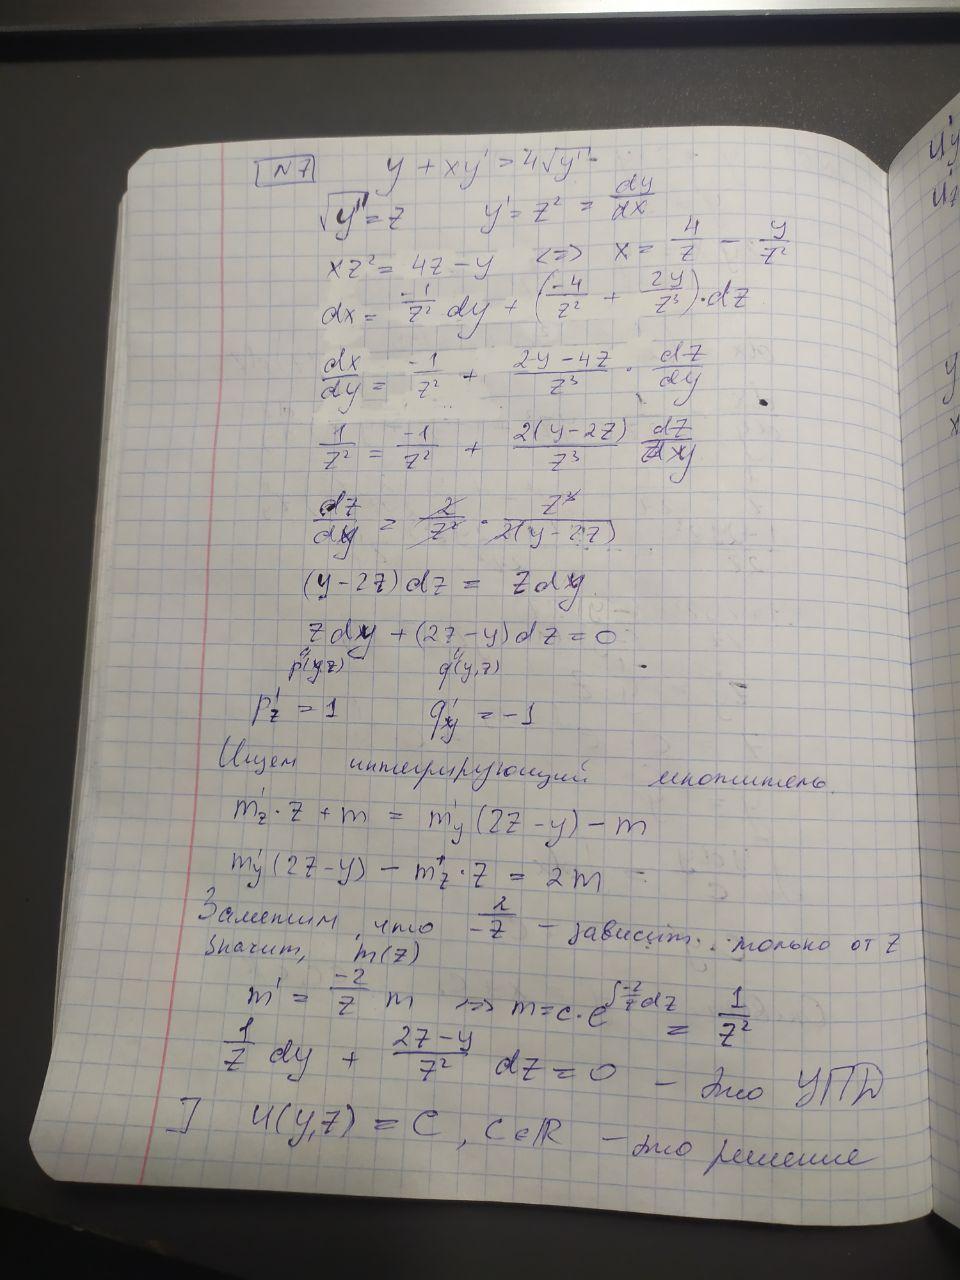 N7 y + xy' = 4√y'
√y' = z y' = z² = dy/dx
xz² = 4z - y <=> x = 4/z - y/z²
dx = -1/z² dy + (-4/z² + 2y/z³)·dz
dx/dy = -1/z² + 2y-4z/z³ · dz/dy
1/z² = -1/z² + 2(y-2z)/z³ dz/dy
dz/dy = 2/z² · z³/2(y-2z)
(y-2z)dz = zdy
zdy + (2z-y)dz = 0
p(y,z) q(y,z)
p'z = 1 q'y = -1
Ищем интегрирующий множитель.
m'z · z + m = m'y (2z-y) - m
m'y (2z-y) - m'z · z = 2m
Заметим, что 2/-z - зависит только от z
значит, m(z)
m' = -2/z m => m = c·e^∫-2/z dz = 1/z²
1/z dy + 2z-y/z² dz = 0 - это УПД
] U(y,z) = C, C∈ℝ - это решение